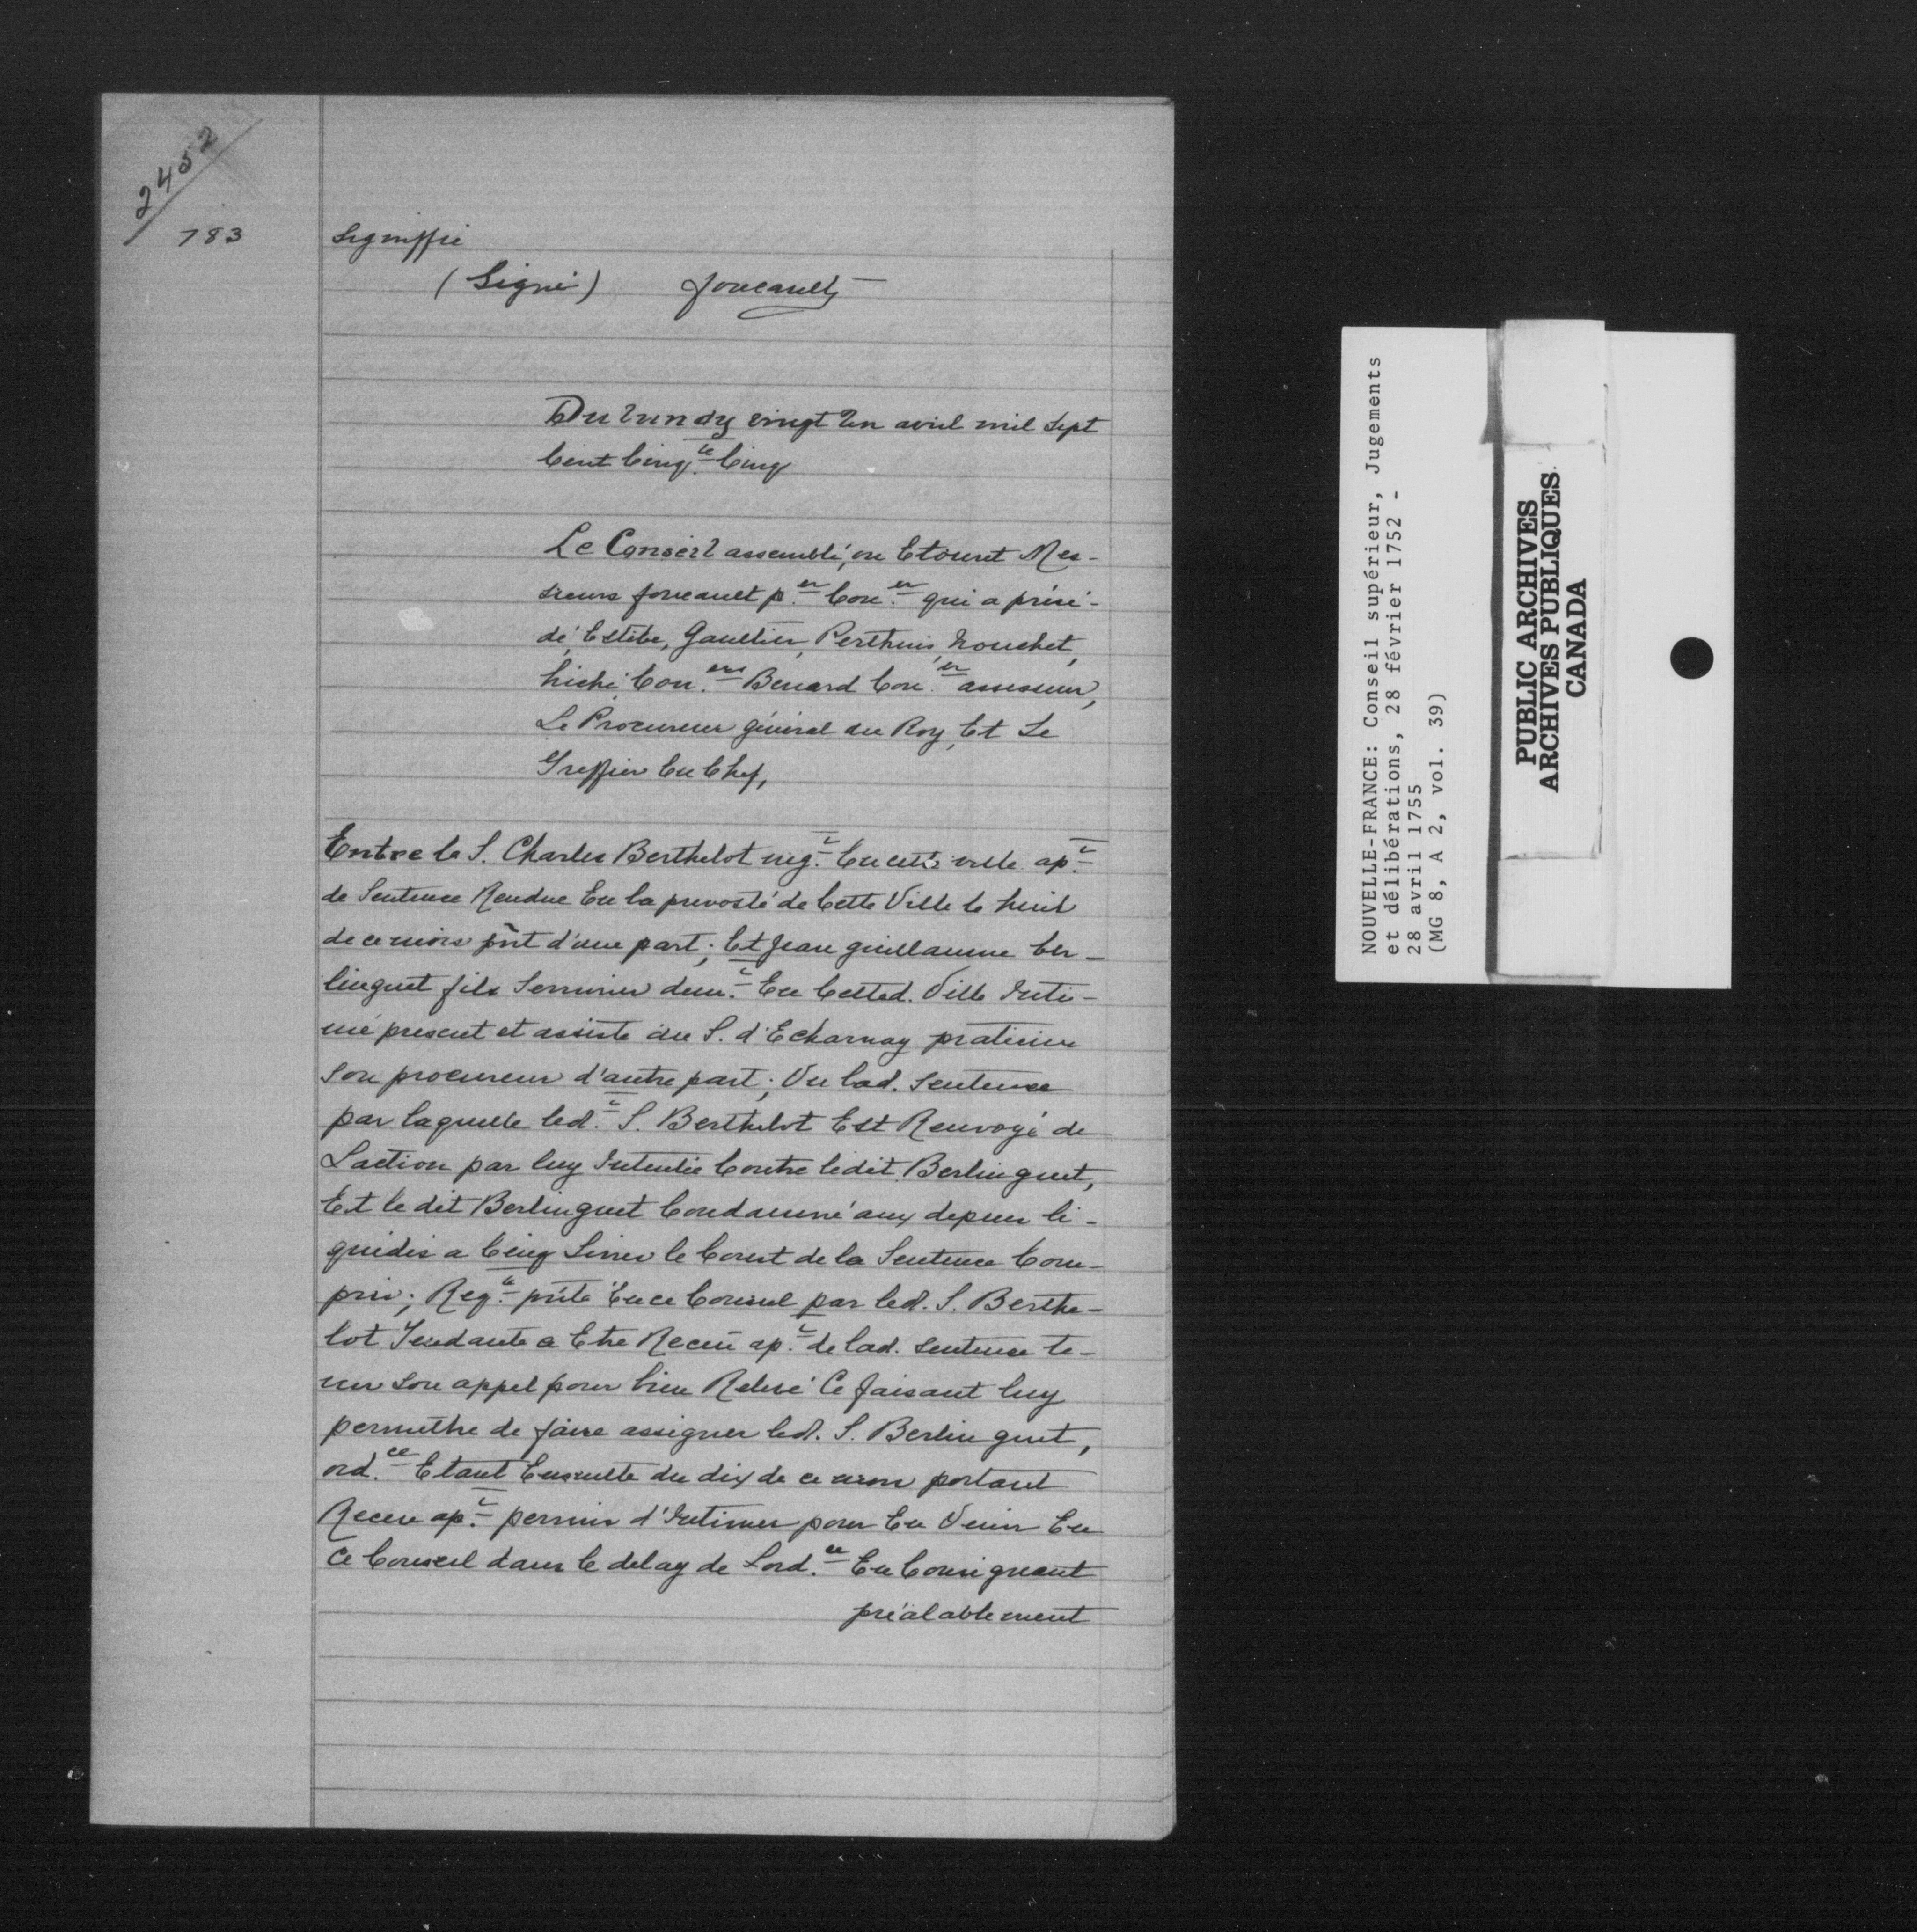 2452
783
Signiffié
(Signé) foucault
Du Lundy vingt Un avril mil Sept
Cent Cinq.te Cinq
Le Conseil assemblé, ou Etoient Mes-
sieurs foucault p.er Con.er qui a prési-
dé, Estèbe, Gaultier, Perthuis, Nouchet,
hiché Con.ers Benard Con.er assesseur,
Le Procureur général du Roy, Et Le
Greffier En Chef,
Entre le S. Charles Berthelot neg.t En cette ville ap.t
de Sentence Rendue En la prevosté de Cette Ville le huit
de ce mois pñt d'une part; Et Jean guillaume Ber-
linguet fils Serrurier dem.t En Cetted. Ville Inti-
mé present et assisté du S. d'Echarnay praticien
Son procureur d'autre part; Vu lad. Sentence
par laquelle led.t S. Berthelot Est Renvoyé de
Laction par luy Intentée Contre ledit Berlinguet,
Et le dit Berlinguet Condamné aux depens li-
quidés a Cinq Livres le Coust de la Sentence Com-
pris; Req.te pñte En ce Conseil par led. S. Berthe-
lot Tendante a Etre Receu ap.t de lad. Sentence te-
nir son appel pour bien Relevé Ce faisant luy
permettre de faire assigner led. S. Berlinguet,
ord.ce Etant Ensuitte du dix de ce mois portant
Receu ap.t permis d'Intimer pour En Venir En
Ce Conseil dans le delay de Lord.ce En Consignant
préalablement
NOUVELLE-FRANCE: Conseil supérieur, Jugements
et délibérations, 28 février 1752 -
28 avril 1755
(MG 8, A 2, vol. 39)
PUBLIC ARCHIVES
ARCHIVES PUBLIQUES
CANADA